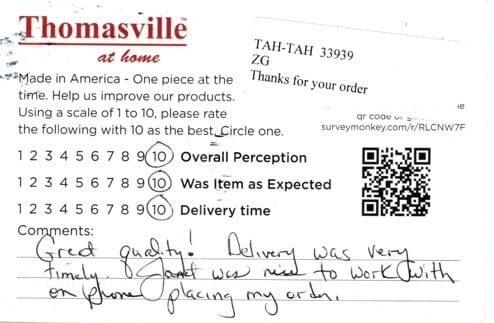 Thomasville
at home
TAH-TAH 33939
ZG
Thanks for your order
Made in America - One piece at the
time. Help us improve our products.
Using a scale of 1 to 10, please rate
the following with 10 as the best. Circle one.
qr code
surveymonkey.com/r/RLCNW7F
1 2 3 4 5 6 7 8 9 10 Overall Perception
1 2 3 4 5 6 7 8 9 10 Was Item as Expected
1 2 3 4 5 6 7 8 9 10 Delivery time
Comments:
Great quality! Delivery was very
timely. Janet was nice to work with
on phone placing my order.